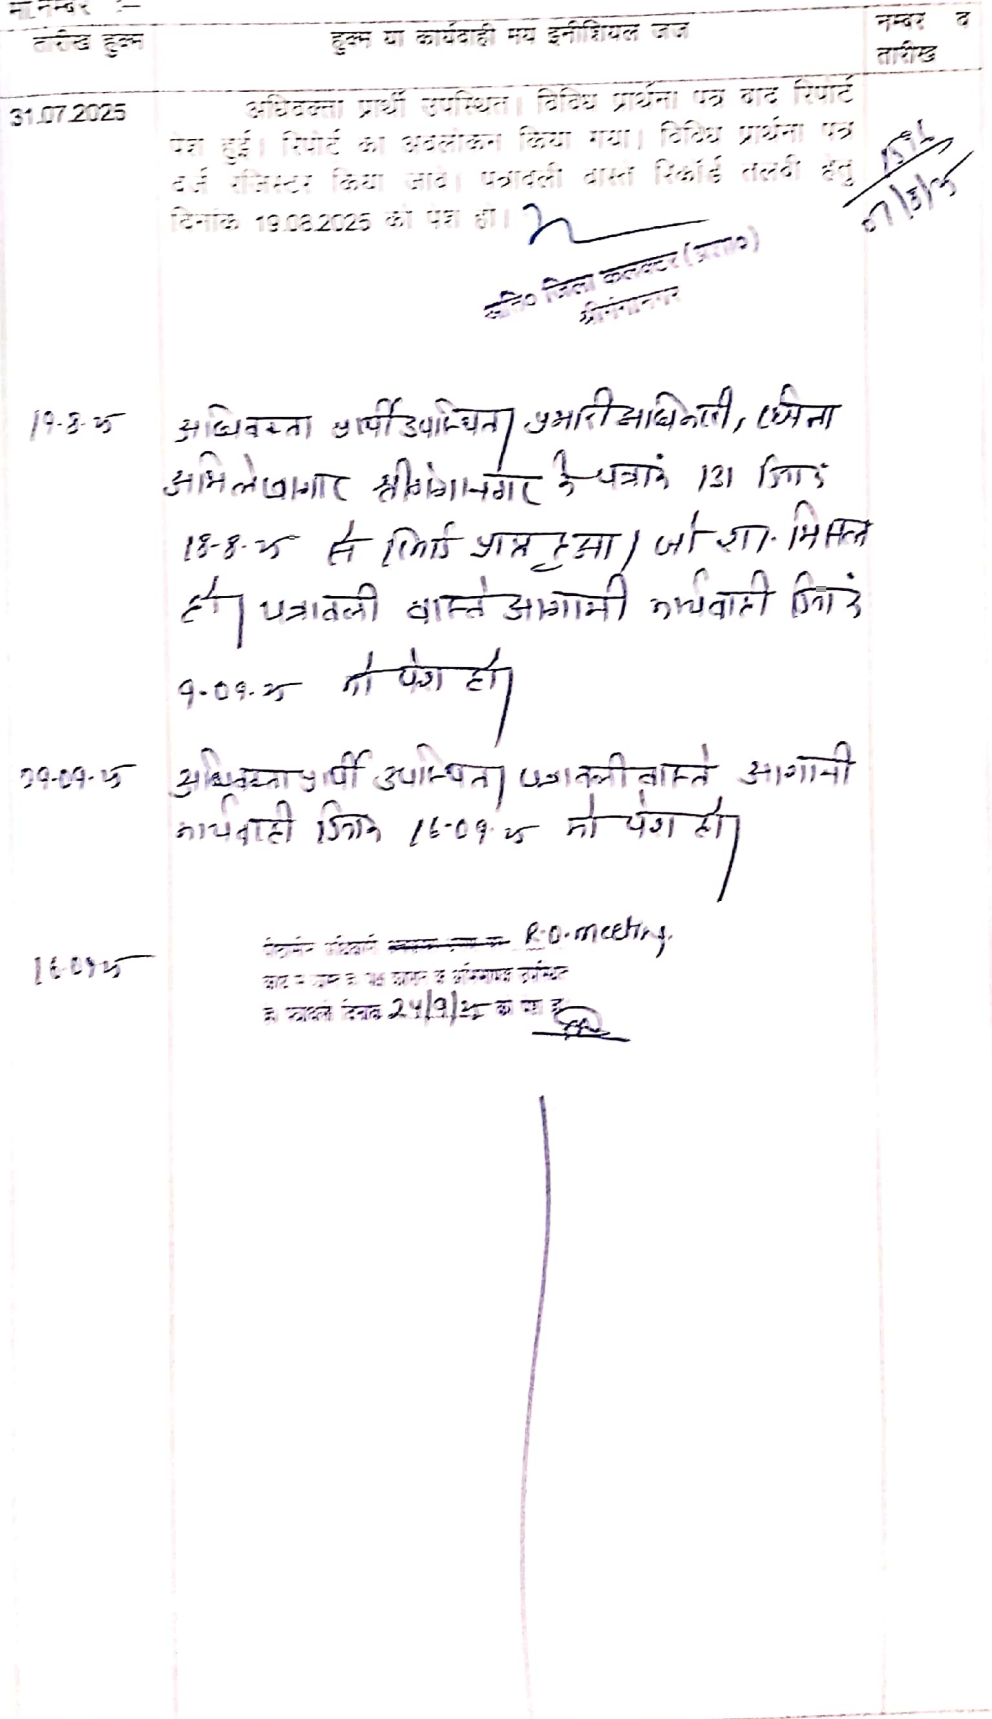 मा.नम्बर :–
तारीख हुक्म हुक्म या कार्यवाही मय इनीशियल जज नम्बर व
तारीख
31.07.2025 अधिवक्ता प्रार्थी उपस्थित। विविध प्रार्थना पत्र बाद रिपोर्ट
पेश हुई। रिपोर्ट का अवलोकन किया गया। विविध प्रार्थना पत्र
दर्ज रजिस्टर किया जावे। पत्रावली वास्ते रिकॉर्ड तलबी हेतु
दिनांक 19.08.2025 को पेश हो।
अति० जिला कलक्टर (प्रशा०)
श्रीगंगानगर
19-8-25 अधिवक्ता प्रार्थी उपस्थित। प्रभारी अधिकारी, जिला
अभिलेखागार श्रीगंगानगर के पत्रांक 131 दिनांक
18-8-25 से रिकॉर्ड प्राप्त हुआ। जो शा. मिसल
हो। पत्रावली वास्ते आगामी कार्यवाही दिनांक
9-09-25 को पेश हो।
09-09-25 अधिवक्ता प्रार्थी उपस्थित। पत्रावली वास्ते आगामी
कार्यवाही दिनांक 16-09-25 को पेश हो।
16-09-25 पीठासीन अधिकारी R.O. meeting.
उपस्थित
दिनांक 24/9/25 को पेश हो